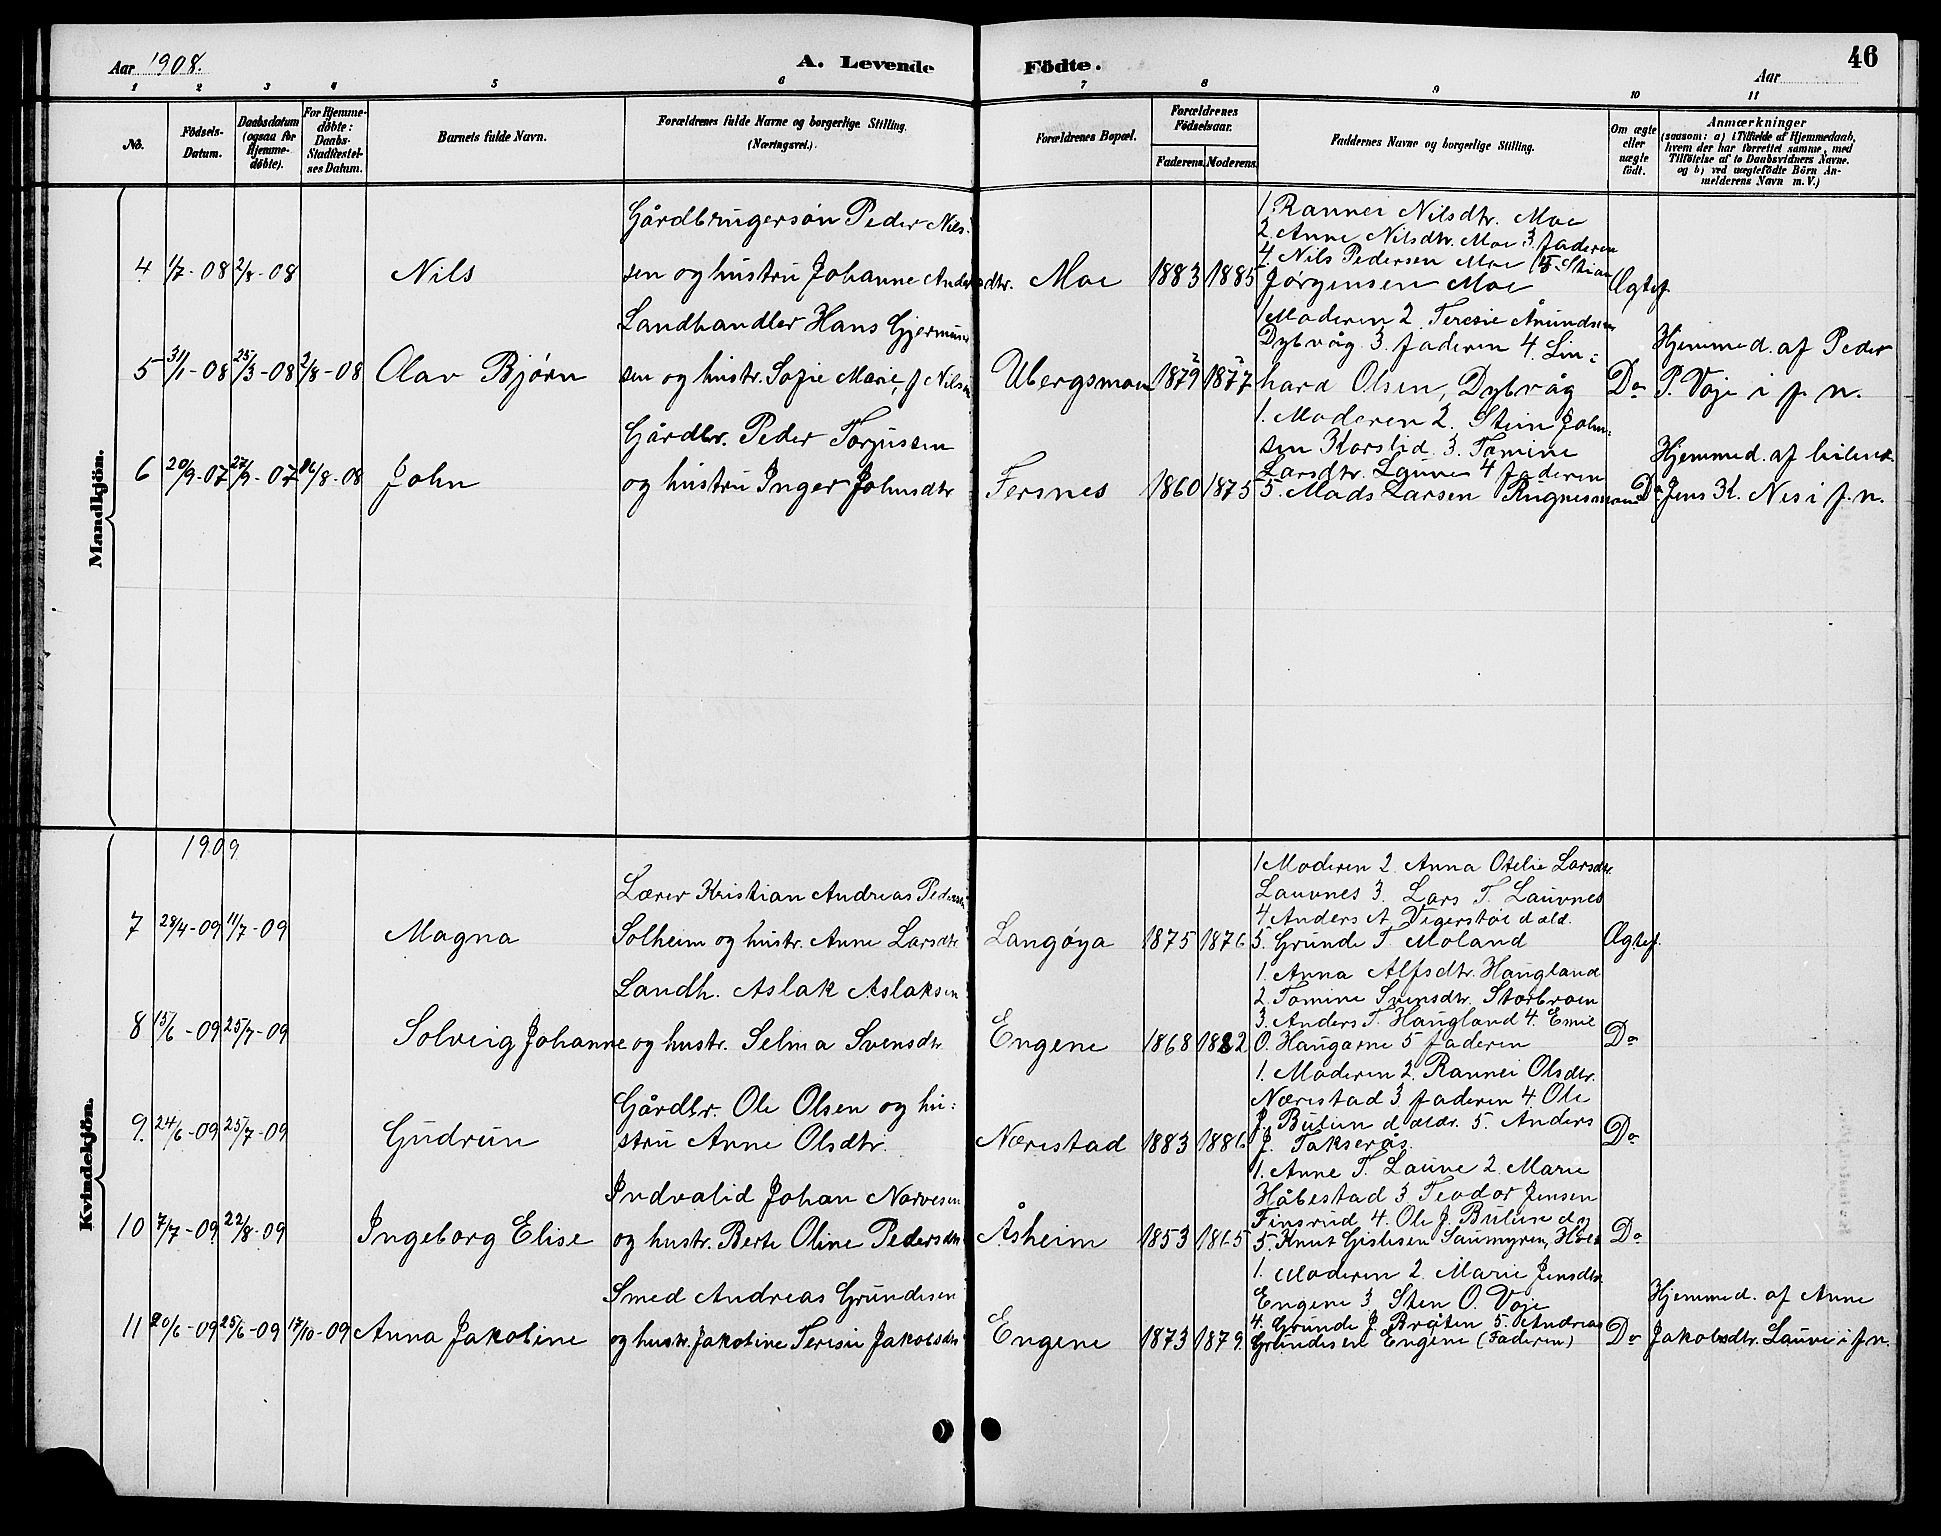 Aar 1908.
A. Levende Födte.
Aar
46
1 2 3 4 5 6 7 8 9 10 11
No.
Födsels-Datum.
Daabsdatum (ogsaa for Hjemme-döbte).
For Hjemme-döbte: Daabs-Stadfæstel-ses Datum.
Barnets fulde Navn.
Forældrenes fulde Navne og borgerlige Stilling. (Næringsvei.)
Forældrenes Bopæl.
Forældrenes Födselsaar.
Faderens. Moderens.
Faddernes Navne og borgerlige Stilling.
Om ægte eller uægte födt.
Anmærkninger
(saasom: a) i Tilfælde af Hjemmedaab,
hvem der har forrettet samme, med
Tilföielse af to Daabsvidners Navne.
og b) ved uægtefödte Börn An-
melderens Navn m. V.)
Mandkjön.
4 1/7-08 2/8-08
Nils
Gårdbrugersøn Peder Nils-
sen og hustru Johanne Andersdtr.
Moe
1883 1885
1. Rannei Nilsdtr. Moe
2. Anne Nilsdtr. Moe 3. faderen
4. Nils Pedersen Moe 5. Stian
Jørgensen Moe
Ægtef.
5 31/1-08 25/3-08 2/8-08
Olav Bjørn
Landhandler Hans Gjermund
sen og hustr. Sofie Marie, f Nilsen
Ubergsmoen
1879 1877
1 Moderen 2. Teresie Åmundsen
Dybvåg 3. faderen 4. Lin=
hard Olsen, Dybvåg
Do
Hjemmed. af Peder
P. Voje i f. n.
6 20/9-07 27/9-07 16/8-08
John
Gårdbr. Peder Torjussen
og hustru Inger Johnsdtr
Fersnes
1860 1875
1. Moderen 2. Stein John=
sen Korslid 3. Tomine
Larsdtr. Launes 4 faderen
5. Mads Larsen
Do
Hjemmed. af
Jens K. Nes i f. n.
Kvindekjön.
1909
7 28/4-09 11/7-09
Magna
Lærer Kristian Andreas Pedersen
Solheim og hustr. Anne Larsdtr
Langøya
1875 1876
1 Moderen 2. Anna Otelie Larsdtr.
Lauvnes 3. Lars T. Lauvnes
4 Anders A. Vigerstøl d ald.
5. Grunde T. Moland
Ægtef.
8 15/6-09 25/7-09
Solveig Johanne
Landh. Aslak Aslaksen
og hustr. Selma Svensdtr
Engene
1868 1882
1. Anna Alfsdtr. Haugland
2. Tomine Svensdtr. Storbroen
3. Anders T. Haugland 4. Emil
O. Haugarne 5 faderen
Do
9. 24/6-09 25/7-09
Gudrun
Gårdbr. Ole Olsen og hu=
stru Anne Olsdtr.
Nærestad
1883 1886
1. Moderen 2. Rannei Olsdtr.
Nærestad 3 faderen 4 Ole
J. Bulun d. ældr. 5. Anders
J. Takserås.
Do
10 7/7-09 22/8-09
Ingeborg Elise
Indvalid Johan Norvesen
og hustr. Berte Oline Pedersdtr
Åsheim
1853 1865
1. Anne T. Lauve 2. Marie
Håbestad 3 Teodor Jensen
Finsrud 4. Ole J. Bulun
5. Knut Gislesen Saumyren,
Do
11 20/6-09 25/6-09 17/10-09
Anna Jakobine
Smed Andreas Grundesen
og hustr. Jakobine Teresie Jakobsdtr
Engene
1873 1879.
1. Moderen 2. Marie Jensdtr
Engene 3. Sten O. Voje
4. Grunde J. Bråten 5. Andreas
Grundesen Engene (Faderen)
Do
Hjemmed. af Anne
Jakobsdtr. Lauve i f. n.